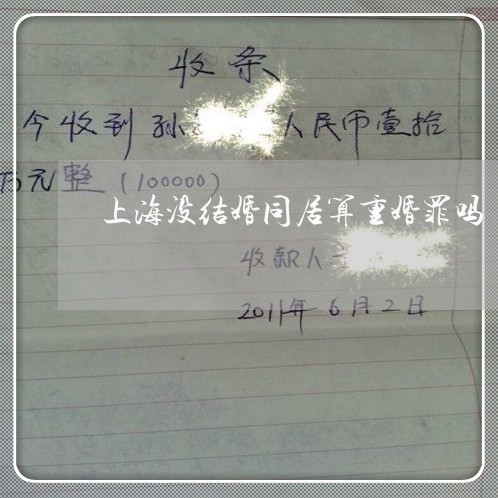 收条
今收到孙 人民币壹拾
万元整（100000）
上海没结婚同居算重婚罪吗
收款人
2011年6月2日